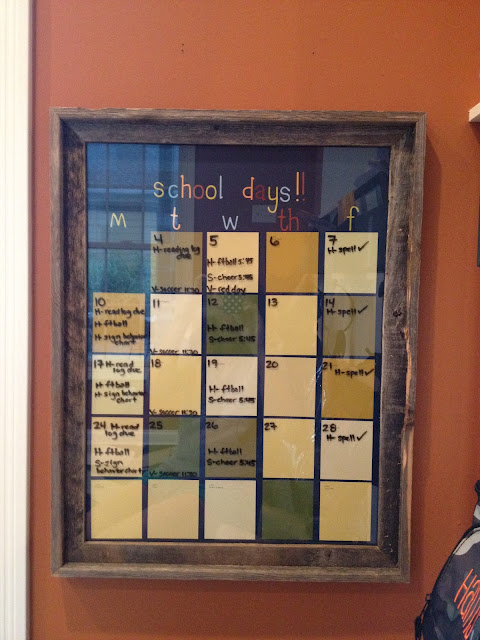 school days!!
m t w th f
4
H-reading log due
V-soccer 11:30
5
H-ftball 5:45
S-cheer 5:45
V-red day
6
7
H-spell ✓
10
H-read log due
H-ftball
H-sign behavior chart
11
V-soccer 11:30
12
H-ftball
S-cheer 5:45
13
14
H-spell ✓
17 H-read
log due
H-ftball
H-sign behavior
chart
18
V-soccer 11:30
19
H-ftball
S-cheer 5:45
20
21
H-spell ✓
24 H-read
log due
H-ftball
S-sign
behavior chart
25
V-soccer 11:30
26
H-ftball
S-cheer 5:45
27
28
H-spell ✓